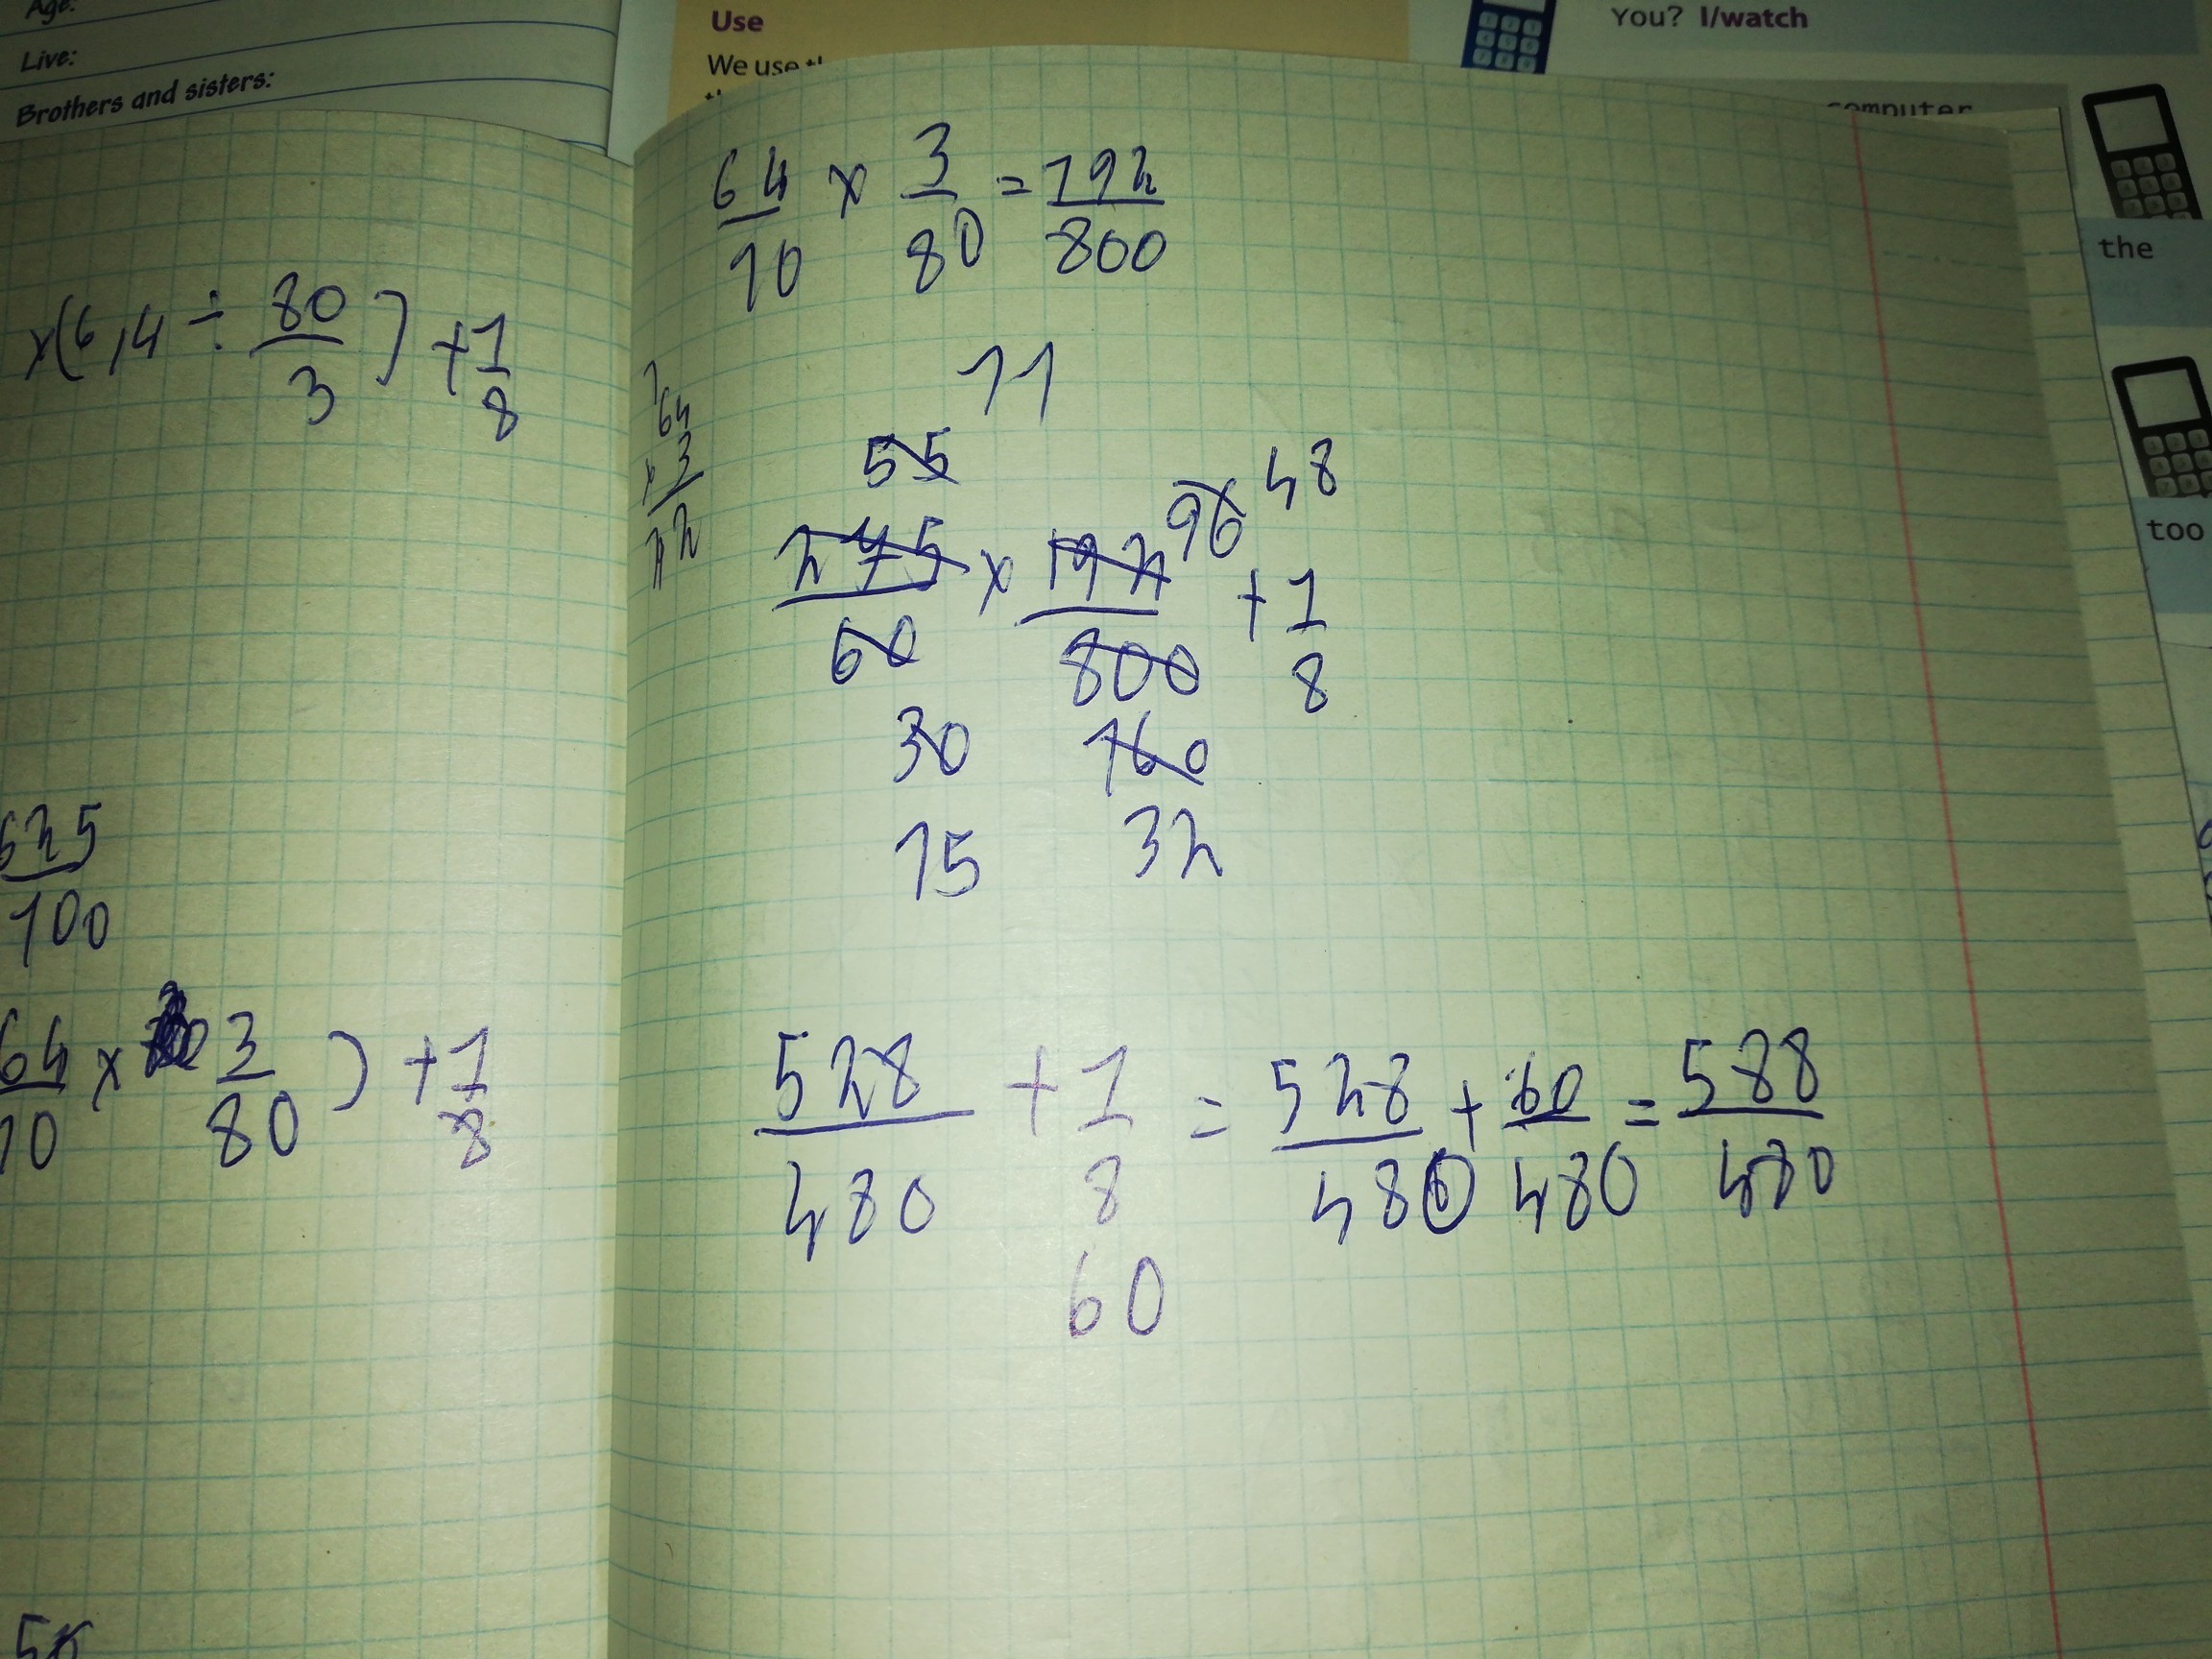 Age:
Live:
Brothers and sisters:
Use
We use
You? I/watch
computer
the
too
x(6,4 ÷ 80/3) + 1/8
525/100
64/10 x 3/80) + 1/8
64/10 x 3/80 = 192/800
64
x 3
11
55
96 48
275/60 x 192/800 + 1/8
30 160
15 32
528/480 + 1/8 = 528/480 + 60/480 = 588/480
60